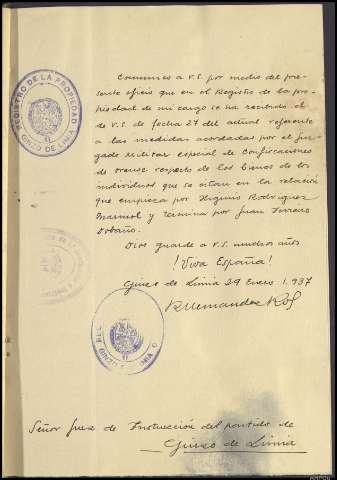 Comunico a V.S. por medio del pre-
sente oficio que en el Registro de la pro-
piedad de mi cargo se ha recibido el
de V.S. de fecha 27 del actual referente
a las medidas acordadas por el Juz-
gado militar especial de Confiscaciones
de Orense respecto de los bienes de los
individuos que se citan en la relación
que empieza por Higinio Rodriguez
y termina por Juan
Dios guarde a V.S. muchos años
¡Viva España!
Ginzo de Limia 29 Enero 1.937
REGISTRO DE LA PROPIEDAD
GINZO DE LIMIA
GINZO DE LIMIA
Señor Juez de Instrucción del partido de
Ginzo de Limia